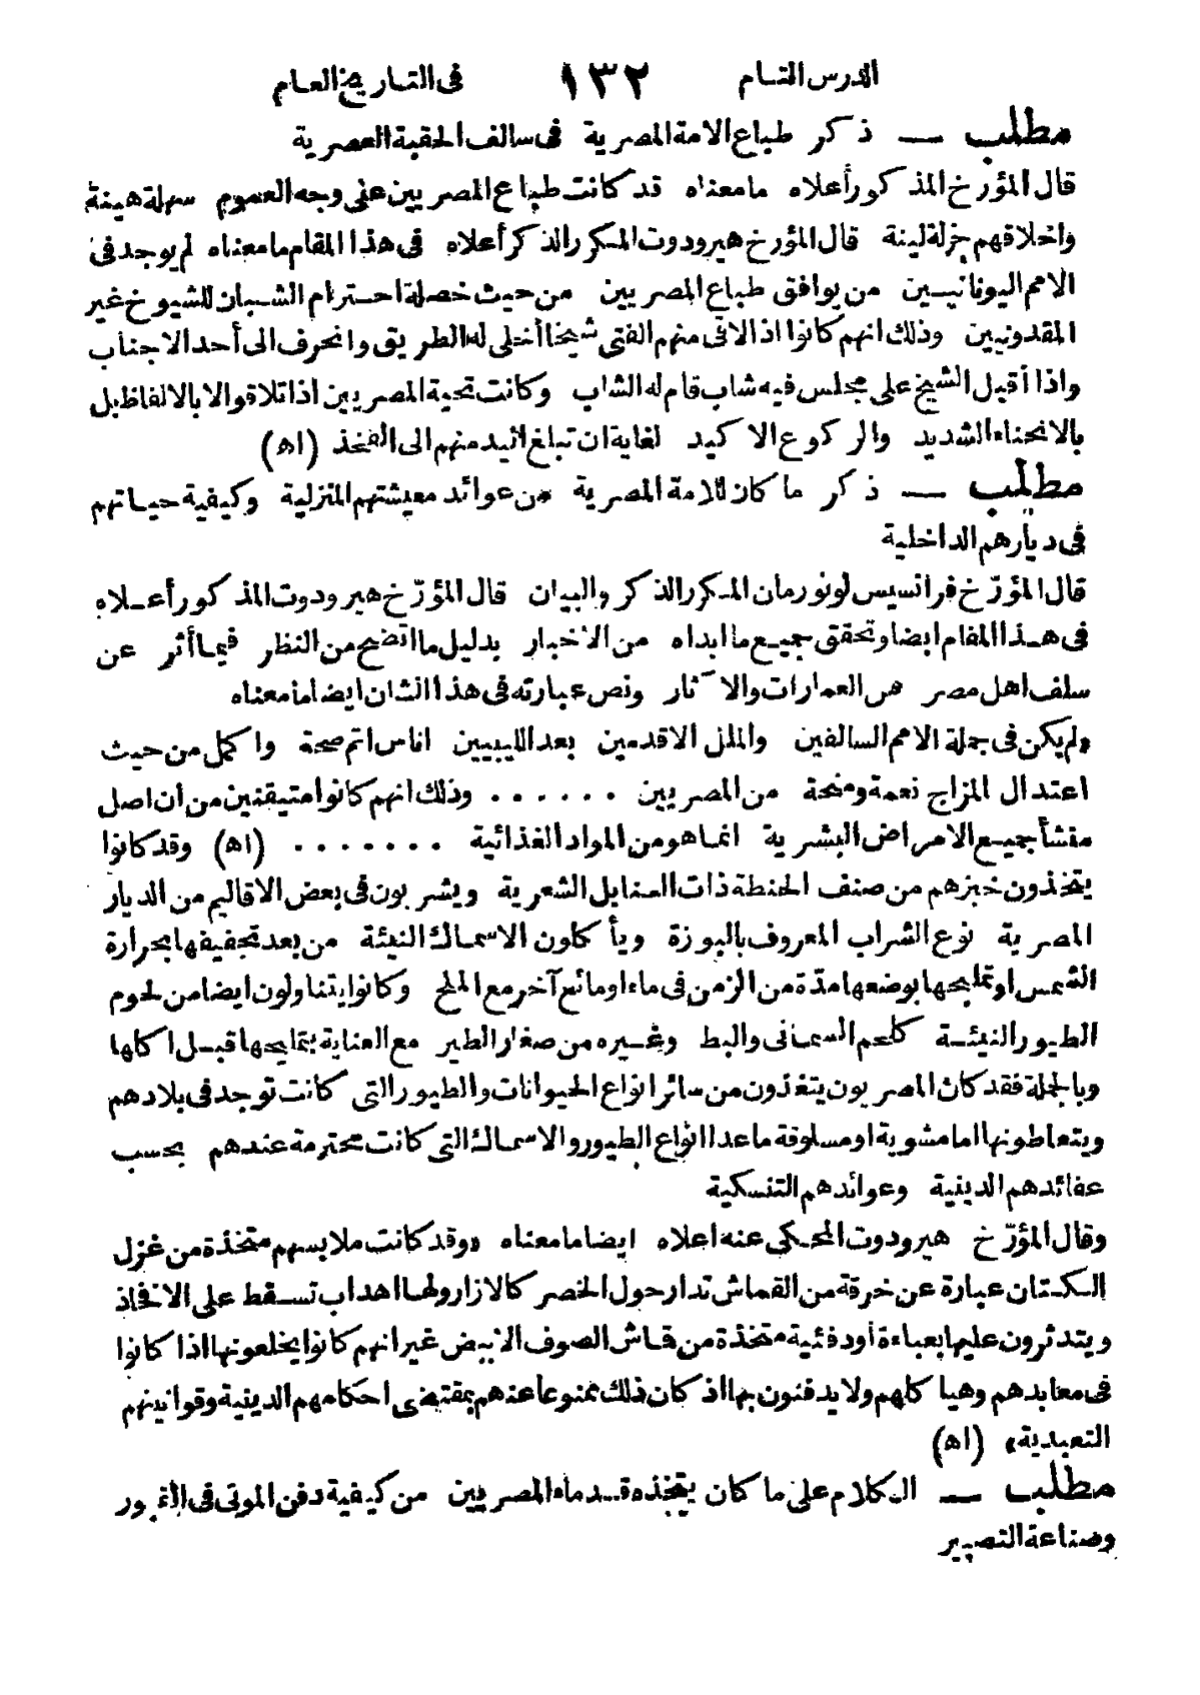 الدرس التام ١٣٢ فى التاريخ العام
مطلب — ذكر طباع الامة المصرية فى سالف الحقبة العصرية
قال المؤرخ المذكور أعلاه ما معناه قد كانت طباع المصريين على وجه العموم سهلة هينة
واخلاقهم جزلة لينة قال المؤرخ هيرودوت المكرر الذكر أعلاه فى هذا المقام ما معناه لم يوجد فى
الامم اليونانيين من يوافق طباع المصريين من حيث خصلة احترام الشبان للشيوخ غير
المقدونيين وذلك انهم كانوا اذا لاقى منهم الفتى شيخا أخلى له الطريق وانحرف الى أحد الاجناب
واذا أقبل الشيخ على مجلس فيه شاب قام له الشاب وكانت تحية المصريين اذا تلاقوا لا بالالفاظ بل
بالانحناء الشديد والركوع الاكيد لغاية ان تبلغ اليد منهم الى الفخذ (اه)
مطلب — ذكر ما كان للامة المصرية من عوائد معيشتهم المنزلية وكيفية حياتهم
فى ديارهم الداخلية
قال المؤرّخ فرانسيس لونورمان المكرر الذكر والبيان قال المؤرّخ هيرودوت المذكور أعلاه
فى هذا المقام ايضا وتحقق جميع ما ابداه من الاخبار بدليل ما اتضح من النظر فيما أثر عن
سلف اهل مصر من العمارات والآثار ونص عبارته فى هذا الشان ايضا ما معناه
«لم يكن فى جملة الامم السالفين والملل الاقدمين بعد الليبيين اناس اتم صحة واكمل من حيث
اعتدال المزاج نعمة ومنحة من المصريين ...... وذلك انهم كانوا متيقنين من ان اصل
منشأ جميع الامراض البشرية انما هو من المواد الغذائية ....... (اه) وقد كانوا
يتخذون خبزهم من صنف الحنطة ذات السنابل الشعرية ويشربون فى بعض الاقاليم من الديار
المصرية نوع الشراب المعروف بالبوزة ويأكلون الاسماك النيئة من بعد تجفيفها بحرارة
الشمس او تمليحها بوضعها مدّة من الزمن فى ماء او مائع آخر مع الملح وكانوا يتناولون ايضا من لحوم
الطيور النيئة كلحم السمانى والبط وغيره من صغار الطير مع العناية بتمليحها قبل اكلها
وبالجملة فقد كان المصريون يتغذون من سائر انواع الحيوانات والطيور التى كانت توجد فى بلادهم
ويتعاطونها اما مشوية او مسلوقة ما عدا انواع الطيور والاسماك التى كانت محترمة عندهم بحسب
عقائدهم الدينية وعوائدهم التنسكية
وقال المؤرّخ هيرودوت المحكى عنه اعلاه ايضا ما معناه «وقد كانت ملابسهم متخذة من غزل
الكتان عبارة عن خرقة من القماش تدار حول الخصر كالازار ولها اهداب تسقط على الافخاذ
ويتدثرون عليها بعباءة أو دفئية متخذة من قماش الصوف الابيض غير انهم كانوا يخلعونها اذا كانوا
فى معابدهم وهياكلهم ولا يدفنون بها اذ كان ذلك ممنوعا عندهم بمقتضى احكامهم الدينية وقوانينهم
التعبدية» (اه)
مطلب — الكلام على ما كان يتخذه قدماء المصريين من كيفية دفن الموتى فى القبور
وصناعة التصبير